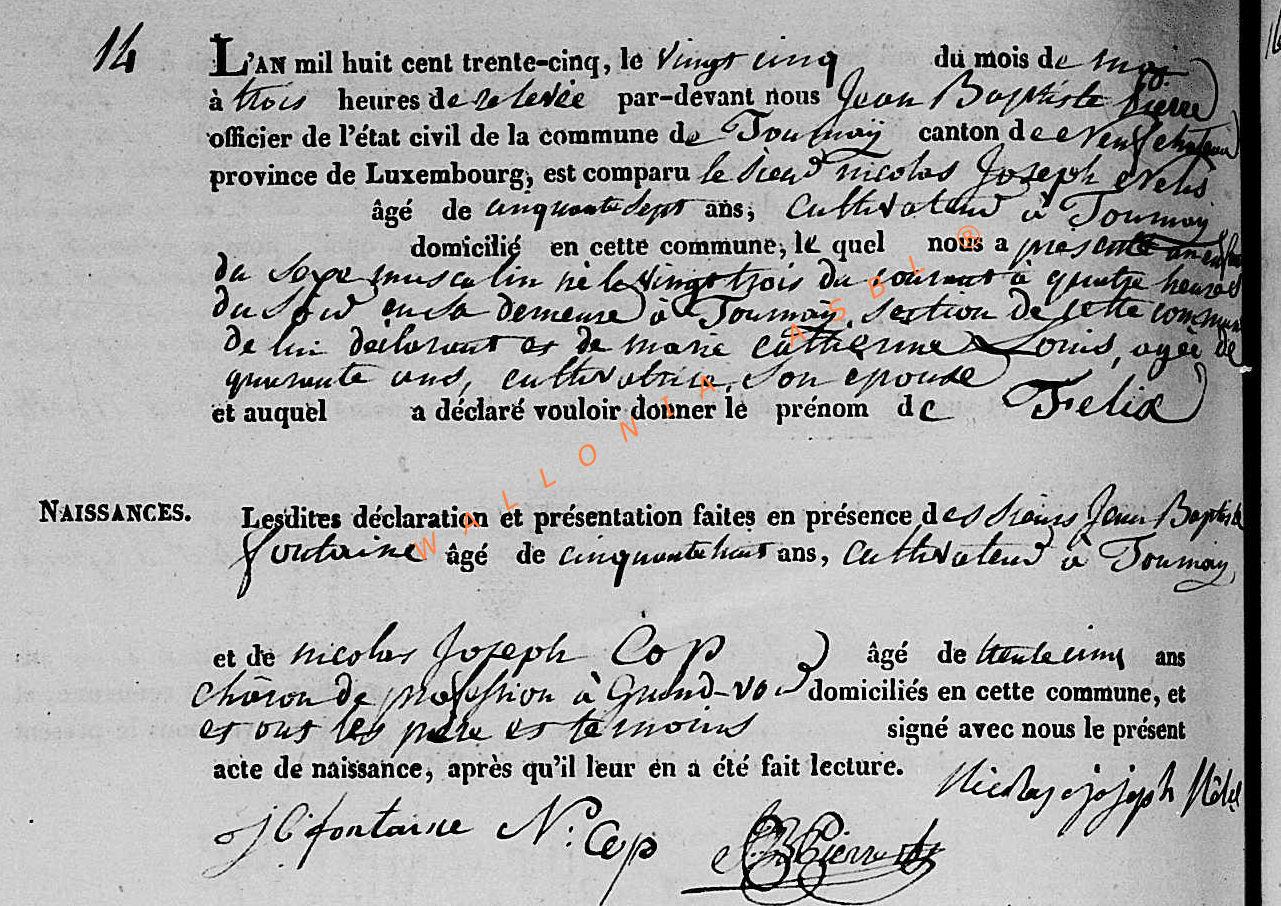 14
L'AN mil huit cent trente-cinq, le vingt cinq du mois de may
à trois heures de relevée par-devant nous Jean Baptiste Pierre
officier de l'état civil de la commune de Tournaÿ canton de Neufchateau
province de Luxembourg, est comparu le Sieur nicolas Joseph
âgé de cinquante Sept ans, Cultivateur à Tournay
domicilié en cette commune, le quel nous a presenté un enfant
du Sexe masculin né le vingt trois du courant à quatre heures
du Soir en sa demeure à Tournaÿ, section de cette commune
de lui déclarant et de marie catherine Louis, agée de
quarante ans, cultivatrice, Son epouse
et auquel a déclaré vouloir donner le prénom de Felix
NAISSANCES.
Lesdites déclaration et présentation faites en présence des Sieurs Jean Baptiste
fontaine âgé de cinquante huit ans, Cultivateur à Tournay
et de nicolas Joseph Cop âgé de trente cinq ans
charon de profession à Grand-voir domiciliés en cette commune, et
et ont les père et temoins signé avec nous le présent
acte de naissance, après qu'il leur en a été fait lecture.
Nicolas joseph
J B fontaine N. Cop JB Pierre
WALLONIA ASBL ®